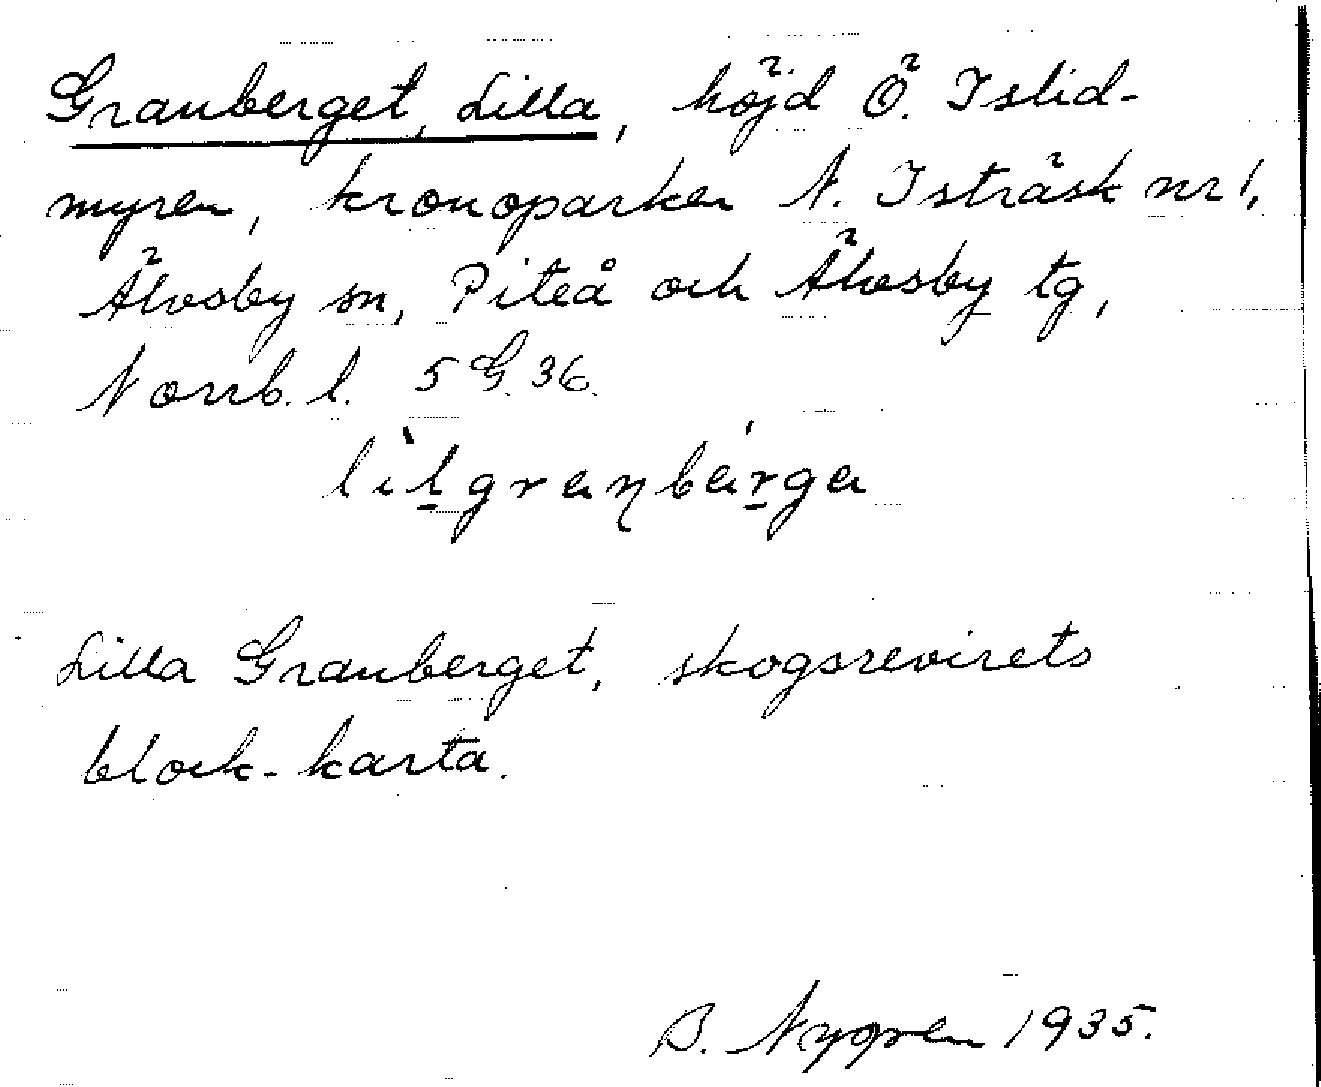 Granberget, Lilla, höjd Ö. Islid-
myren, kronoparken N. Isträsk nr 1,
Älvsby sn, Piteå och Älvsby tg,
Norrb. l. 5 G. 36.
lìlgranbárga
Lilla Granberget, skogsrevirets
block-karta.
B. Nygren 1935.